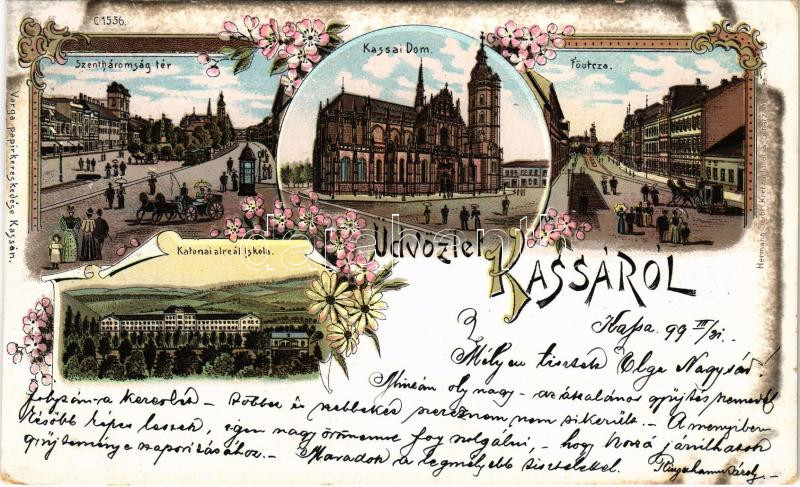 C 1536.
Szentháromság tér
Kassai Dom.
Föutcza.
Varga papirkereskedése Kassán.
Katonai alreál iskola.
Üdvözlet
KASSÁRÓL
Kassa. 99 III/31.
Mélyen tisztelt Olga Nagysád!
Miután oly nagy - az általános gyüjtés
kereslet - többet és szebbeket szereznem nem sikerült. - A mennyiben
később képes leszek, igen nagy örömemre fog szolgálni, - hogy hozzá járulhatok
gyüjteménye szaporitásához. - Maradok a legmélyebb tisztelettel.